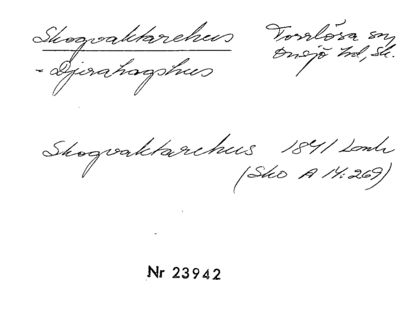 Skogvaktarehus Torrlösa sn,
= Djurahagshus Onsjö hd, Sk.
Skogvaktarehus 1871 Lantm
(Sko A 14:269)
Nr 23942